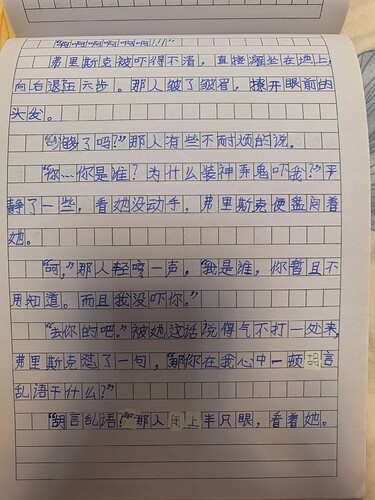 “啊啊啊啊啊啊!!!”
弗里斯克被吓得不清,直接瘫坐在地上,
向右退伍六步。那人皱了皱眉,撩开眼前的
头发。
“够了吗?”那人有些不耐烦的说。
“你…你是谁?为什么装神弄鬼吓我?”平
静了一些,看她没动手,弗里斯克便盔问着
她。
“呵,”那人轻哼一声,“我是谁,你暂且不
用知道。而且我没吓你。”
“去你的吧。”被她这话说得气不打一处来,
弗里斯克怼了一句,“那你在我心中一顿胡言
乱语干什么?”
“胡言乱语?”那人闭上半只眼,看着她。